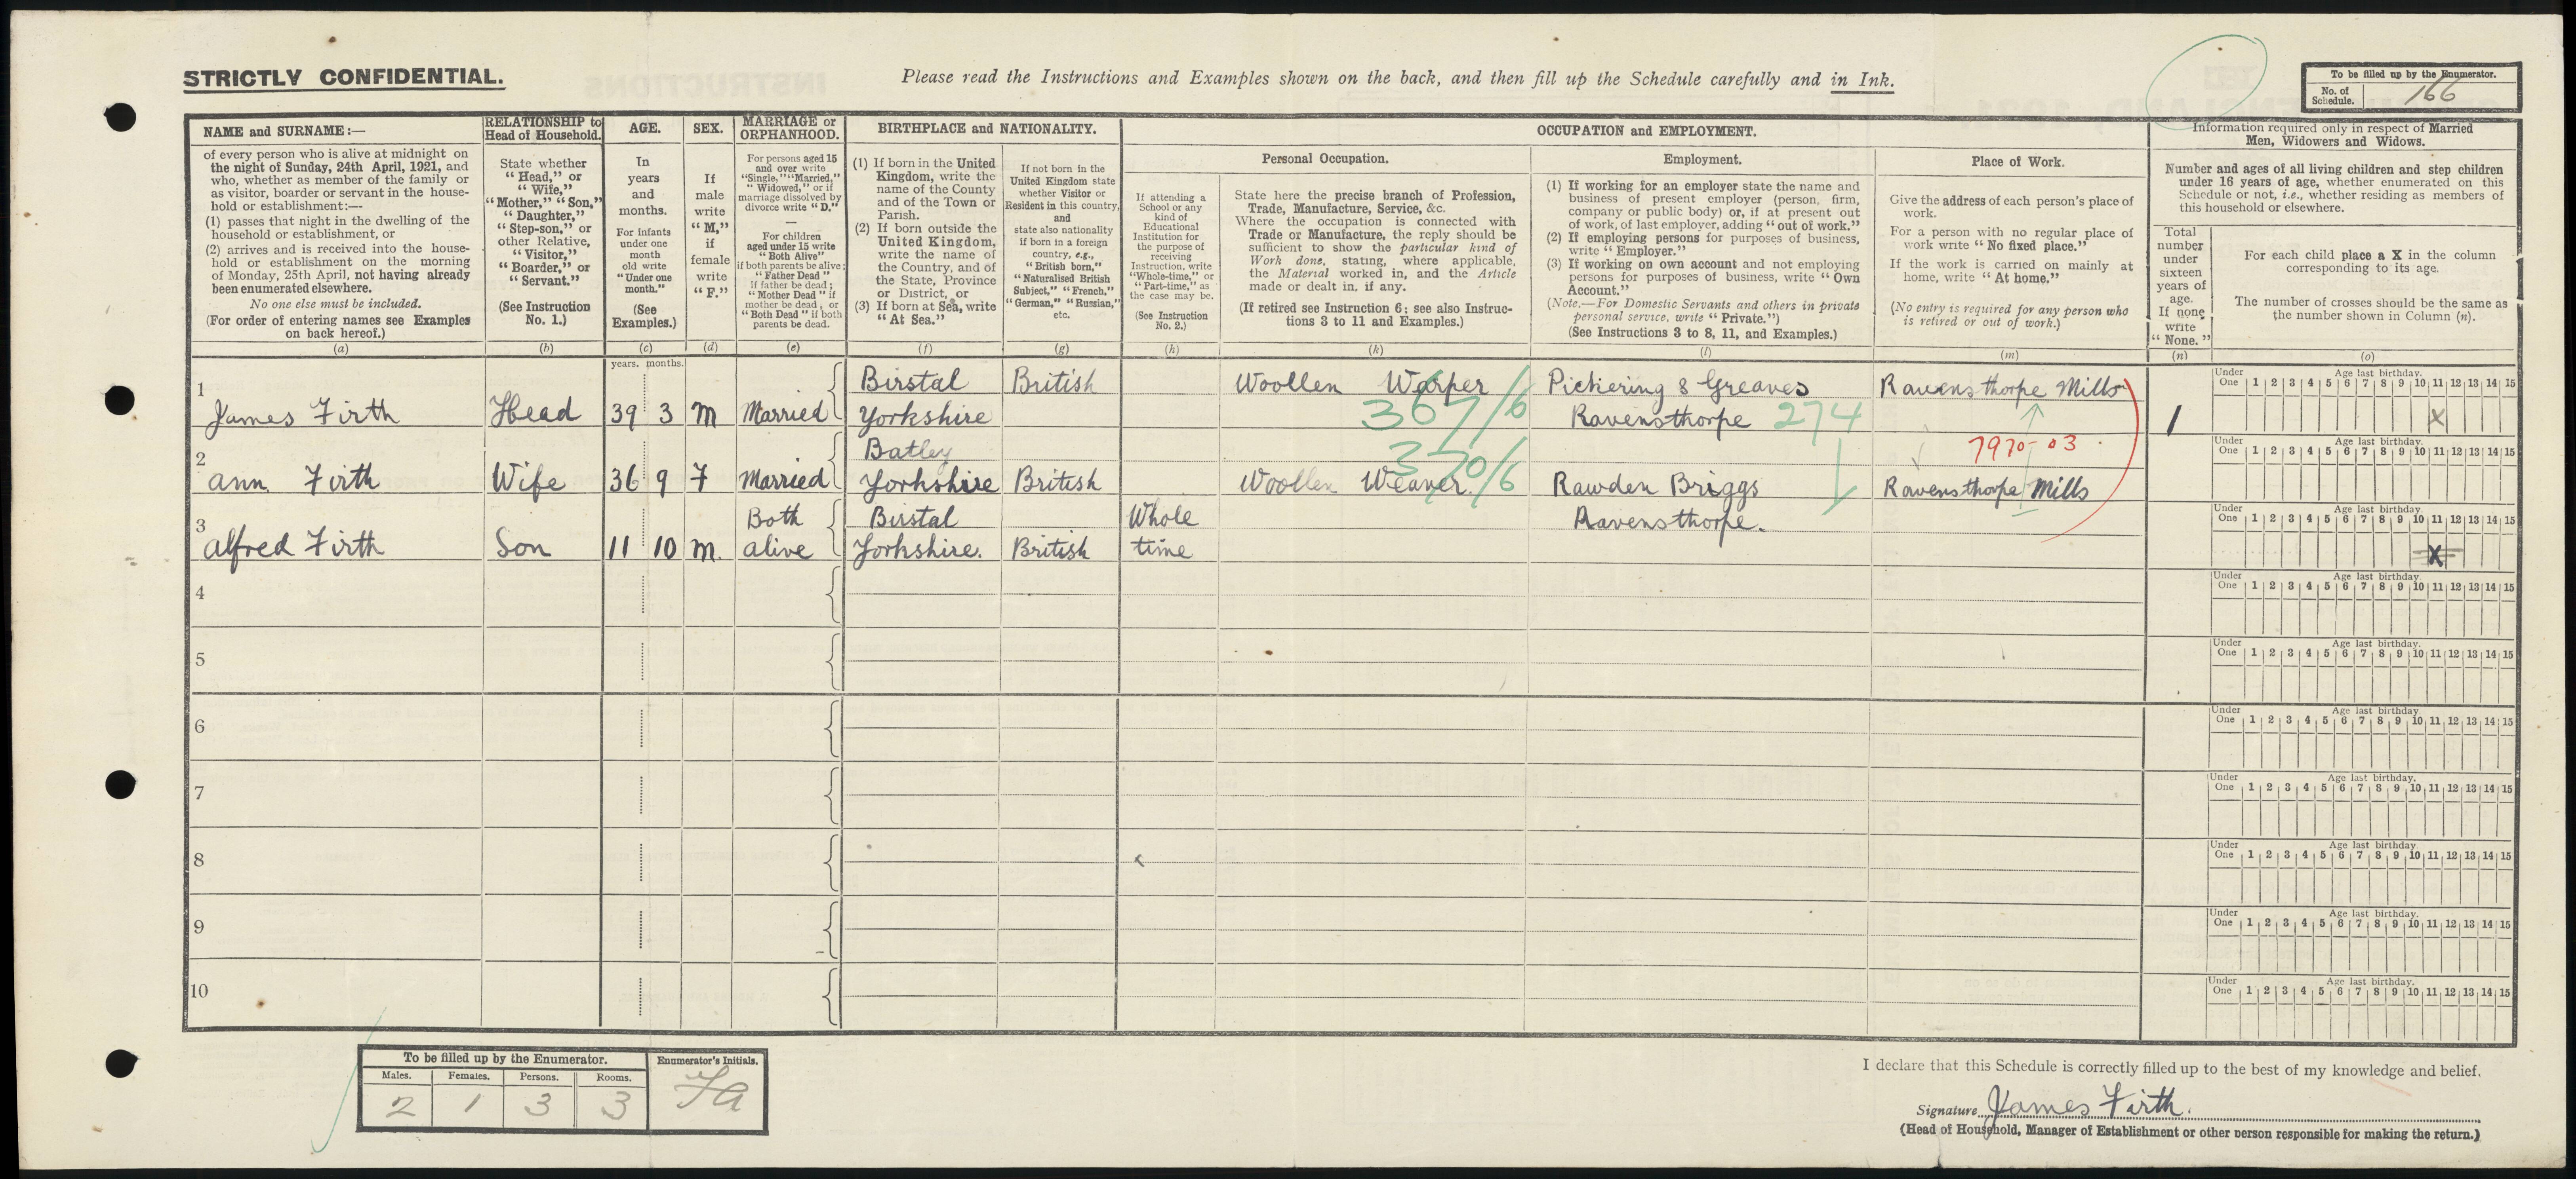 STRICTLY CONFIDENTIAL.
Please read the Instructions and Examples shown on the back, and then fill up the Schedule carefully and in Ink.
To be filled up by the Enumerator.
No. of Schedule. 166
NAME and SURNAME:—
of every person who is alive at midnight on
the night of Sunday, 24th April, 1921, and
who, whether as member of the family or
as visitor, boarder or servant in the house-
hold or establishment:—
(1) passes that night in the dwelling of the
household or establishment, or
(2) arrives and is received into the house-
hold or establishment on the morning
of Monday, 25th April, not having already
been enumerated elsewhere.
No one else must be included.
(For order of entering names see Examples
on back hereof.)
(a)
RELATIONSHIP to
Head of Household.
State whether
"Head," or
"Wife,"
"Mother," "Son,"
"Daughter,"
"Step-son," or
other Relative,
"Visitor,"
"Boarder," or
"Servant."
(See Instruction
No. 1.)
(b)
AGE.
In
years
and
months.
For infants
under one
month
old write
"Under one
month."
(See
Examples.)
(c)
SEX.
If
male
write
"M,"
if
female
write
"F."
(d)
MARRIAGE or
ORPHANHOOD.
For persons aged 15
and over write
"Single," "Married,"
"Widowed," or if
marriage dissolved by
divorce write "D."
—
For children
aged under 15 write
"Both Alive"
if both parents be alive;
"Father Dead"
if father be dead;
"Mother Dead" if
mother be dead, or
"Both Dead" if both
parents be dead.
(e)
BIRTHPLACE and NATIONALITY.
(1) If born in the United
Kingdom, write the
name of the County
and of the Town or
Parish.
(2) If born outside the
United Kingdom,
write the name of
the Country, and of
the State, Province
or District, or
(3) If born at Sea, write
"At Sea."
(f)
If not born in the
United Kingdom state
whether Visitor or
Resident in this country,
and
state also nationality
if born in a foreign
country, e.g.,
"British born,"
"Naturalised British
Subject," "French,"
"German," "Russian,"
etc.
(g)
OCCUPATION and EMPLOYMENT.
If attending a
School or any
kind of
Educational
Institution for
the purpose of
receiving
Instruction, write
"Whole-time," or
"Part-time," as
the case may be.
(See Instruction
No. 2.)
(h)
Personal Occupation.
State here the precise branch of Profession,
Trade, Manufacture, Service, &c.
Where the occupation is connected with
Trade or Manufacture, the reply should be
sufficient to show the particular kind of
Work done, stating, where applicable,
the Material worked in, and the Article
made or dealt in, if any.
(If retired see Instruction 6; see also Instruc-
tions 3 to 11 and Examples.)
(k)
Employment.
(1) If working for an employer state the name and
business of present employer (person, firm,
company or public body) or, if at present out
of work, of last employer, adding "out of work."
(2) If employing persons for purposes of business,
write "Employer."
(3) If working on own account and not employing
persons for purposes of business, write "Own
Account."
(Note.—For Domestic Servants and others in private
personal service, write "Private.")
(See Instructions 3 to 8, 11, and Examples.)
(l)
Place of Work.
Give the address of each person's place of
work.
For a person with no regular place of
work write "No fixed place."
If the work is carried on mainly at
home, write "At home."
(No entry is required for any person who
is retired or out of work.)
(m)
Information required only in respect of Married
Men, Widowers and Widows.
Number and ages of all living children and step children
under 16 years of age, whether enumerated on this
Schedule or not, i.e., whether residing as members of
this household or elsewhere.
Total
number
under
sixteen
years of
age.
If none
write
"None."
(n)
For each child place a X in the column
corresponding to its age.
The number of crosses should be the same as
the number shown in Column (n).
(o)
years. months.
1 James Firth Head 39 3 M Married Birstal Yorkshire British Woollen Warper Pickering & Greaves Ravensthorpe Ravensthorpe Mills 1
367/6 274
Under One 1 2 3 4 5 6 7 8 9 10 11 12 13 14 15 Age last birthday.
X
2 Ann Firth Wife 36 9 F Married Batley Yorkshire British Woollen Weaver Rawden Briggs Ravensthorpe. Ravensthorpe Mills
370/6 7970-03
Under One 1 2 3 4 5 6 7 8 9 10 11 12 13 14 15 Age last birthday.
3 Alfred Firth Son 11 10 M. Both alive Birstal Yorkshire. British Whole time
Under One 1 2 3 4 5 6 7 8 9 10 11 12 13 14 15 Age last birthday.
X
4
Under One 1 2 3 4 5 6 7 8 9 10 11 12 13 14 15 Age last birthday
5
Under One 1 2 3 4 5 6 7 8 9 10 11 12 13 14 15 Age last birthday.
6
Under One 1 2 3 4 5 6 7 8 9 10 11 12 13 14 15 Age last birthday
7
Under One 1 2 3 4 5 6 7 8 9 10 11 12 13 14 15 Age last birthday.
8
Under One 1 2 3 4 5 6 7 8 9 10 11 12 13 14 15 Age last birthday
9
Under One 1 2 3 4 5 6 7 8 9 10 11 12 13 14 15 Age last birthday.
10
Under One 1 2 3 4 5 6 7 8 9 10 11 12 13 14 15 Age last birthday.
To be filled up by the Enumerator.
Males. Females. Persons. Rooms.
2 1 3 3
Enumerator's Initials.
FA
I declare that this Schedule is correctly filled up to the best of my knowledge and belief.
Signature James Firth.
(Head of Household, Manager of Establishment or other person responsible for making the return.)